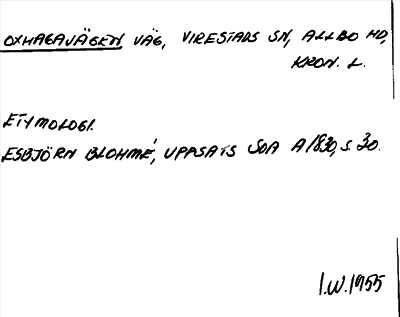 OXHAGAVÄGEN VÄG, VIRESTADS SN, ALLBO HD,
KRON. L.
ETYMOLOGI.
ESBJÖRN BLOHMÉ, UPPSATS SOA A1830, S 30.
I.W. 1955